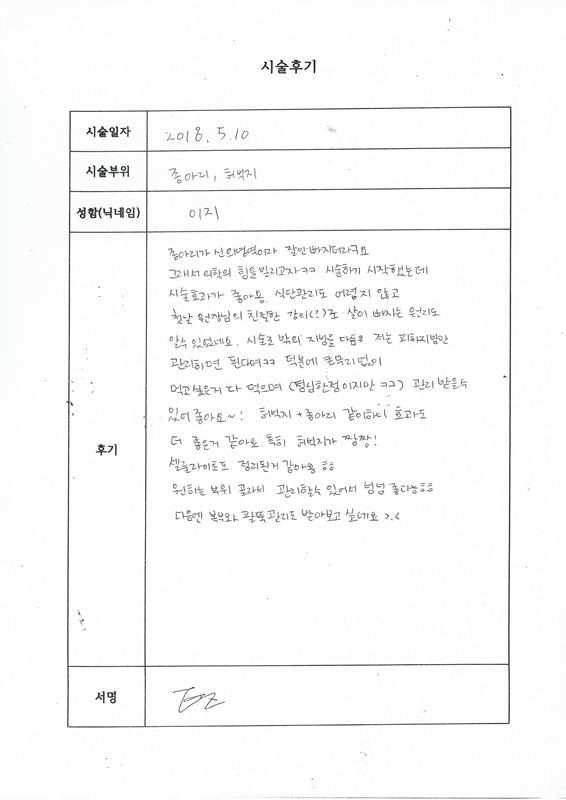 시술후기
시술일자 2018. 5. 10
시술부위 종아리, 허벅지
성함(닉네임) 이지
후기
종아리가 신의영역이라 잘안빠지더라구요
그래서 의학의 힘을 빌리고자ㅋㅋ 시술하기 시작했는데
시술효과가 좋아용. 식단관리도 어렵지 않고
첫날 원장님의 친절한 강의(?)로 살이 빠지는 원리도
알수 있었네요. 시술로 밖의 지방을 다듬고 저는 피하지방만
관리하면 된다며ㅋㅋ 덕분에 큰무리없이
먹고싶은거 다 먹으며 (점심한정이지만 ㅋㅋ) 관리 받을수
있어 좋아요~! 허벅지 + 종아리 같이하니 효과도
더 좋은거 같아요. 특히 허벅지가 짱짱!
셀룰라이트도 정리된거 같아용 ㅎㅎ
원하는 부위 골라서 관리할수 있어서 넘넘 좋다능ㅎㅎ
다음엔 복부와 팔뚝관리도 받아보고 싶네요 >.<
서명